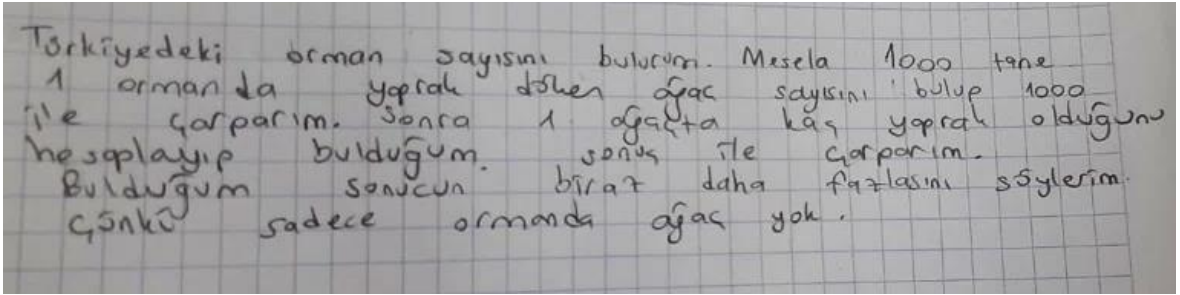 Türkiyedeki orman sayısını bulurum. Mesela 1000 tane
1 ormanda yaprak döken ağaç sayısını bulup 1000
ile çarparım. Sonra 1 ağaçta kaç yaprak olduğunu
hesaplayıp bulduğum. sonuç ile çarparım.
Bulduğum sonucun biraz daha fazlasını söylerim.
Çünkü sadece ormanda ağaç yok.